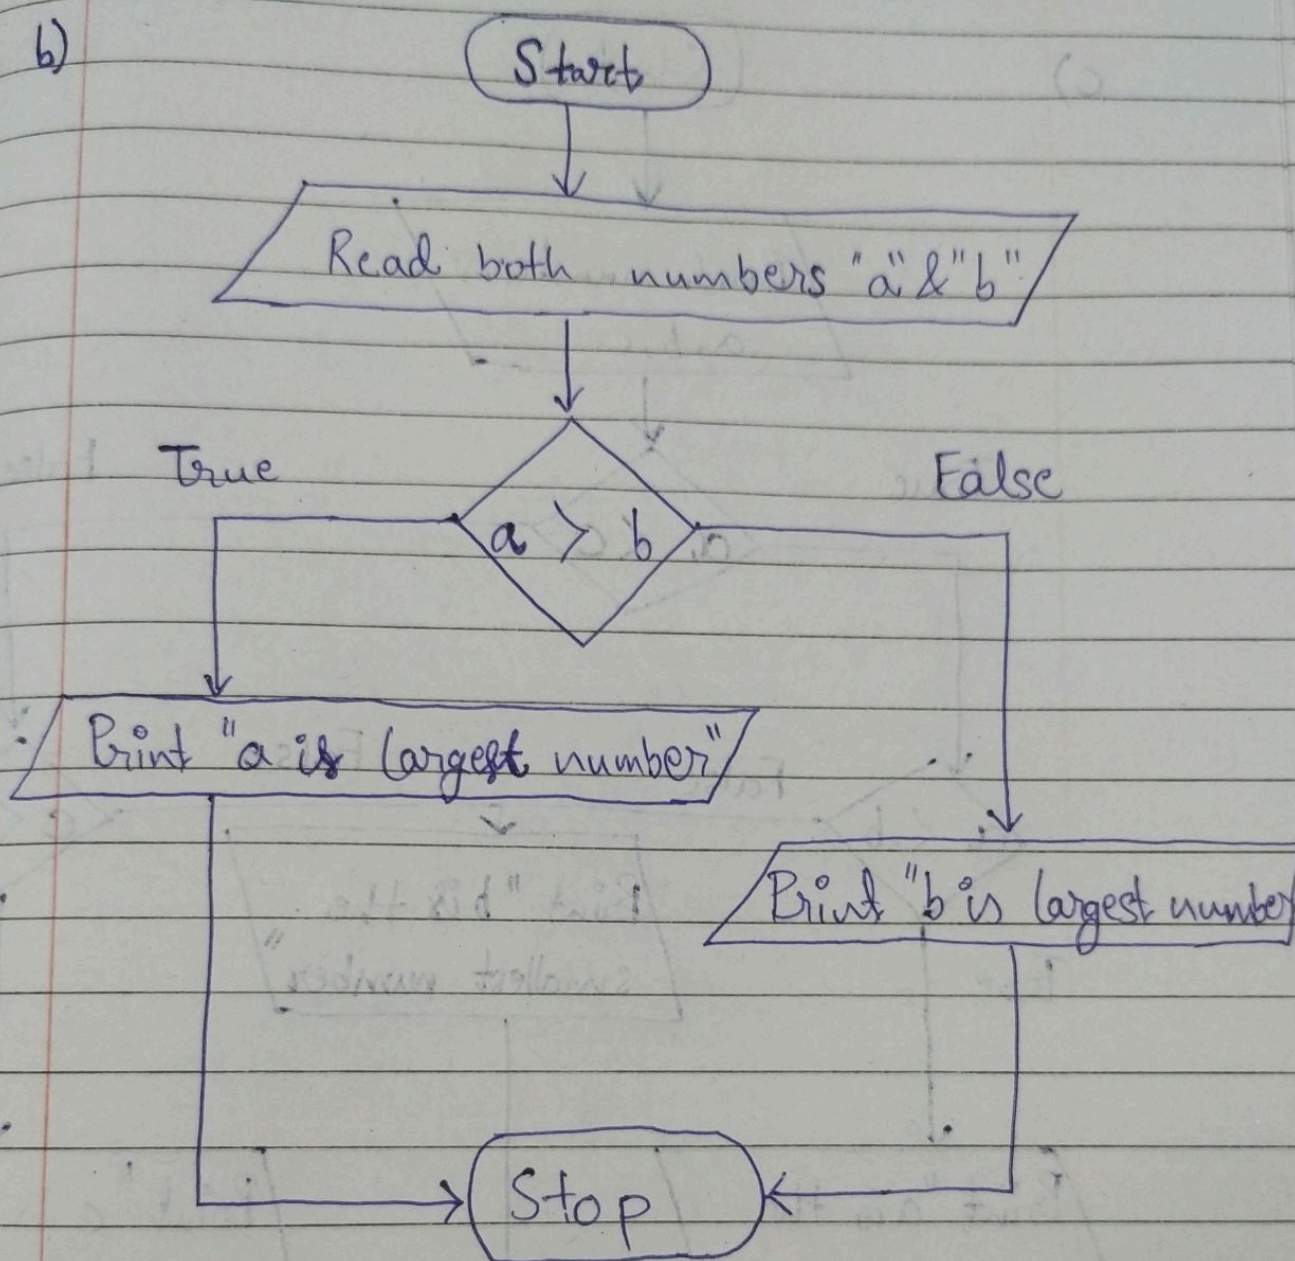 b)
Start
Read both numbers "a" & "b"
True
False
a > b
Print "a is largest number"
Print "b is largest number
Stop